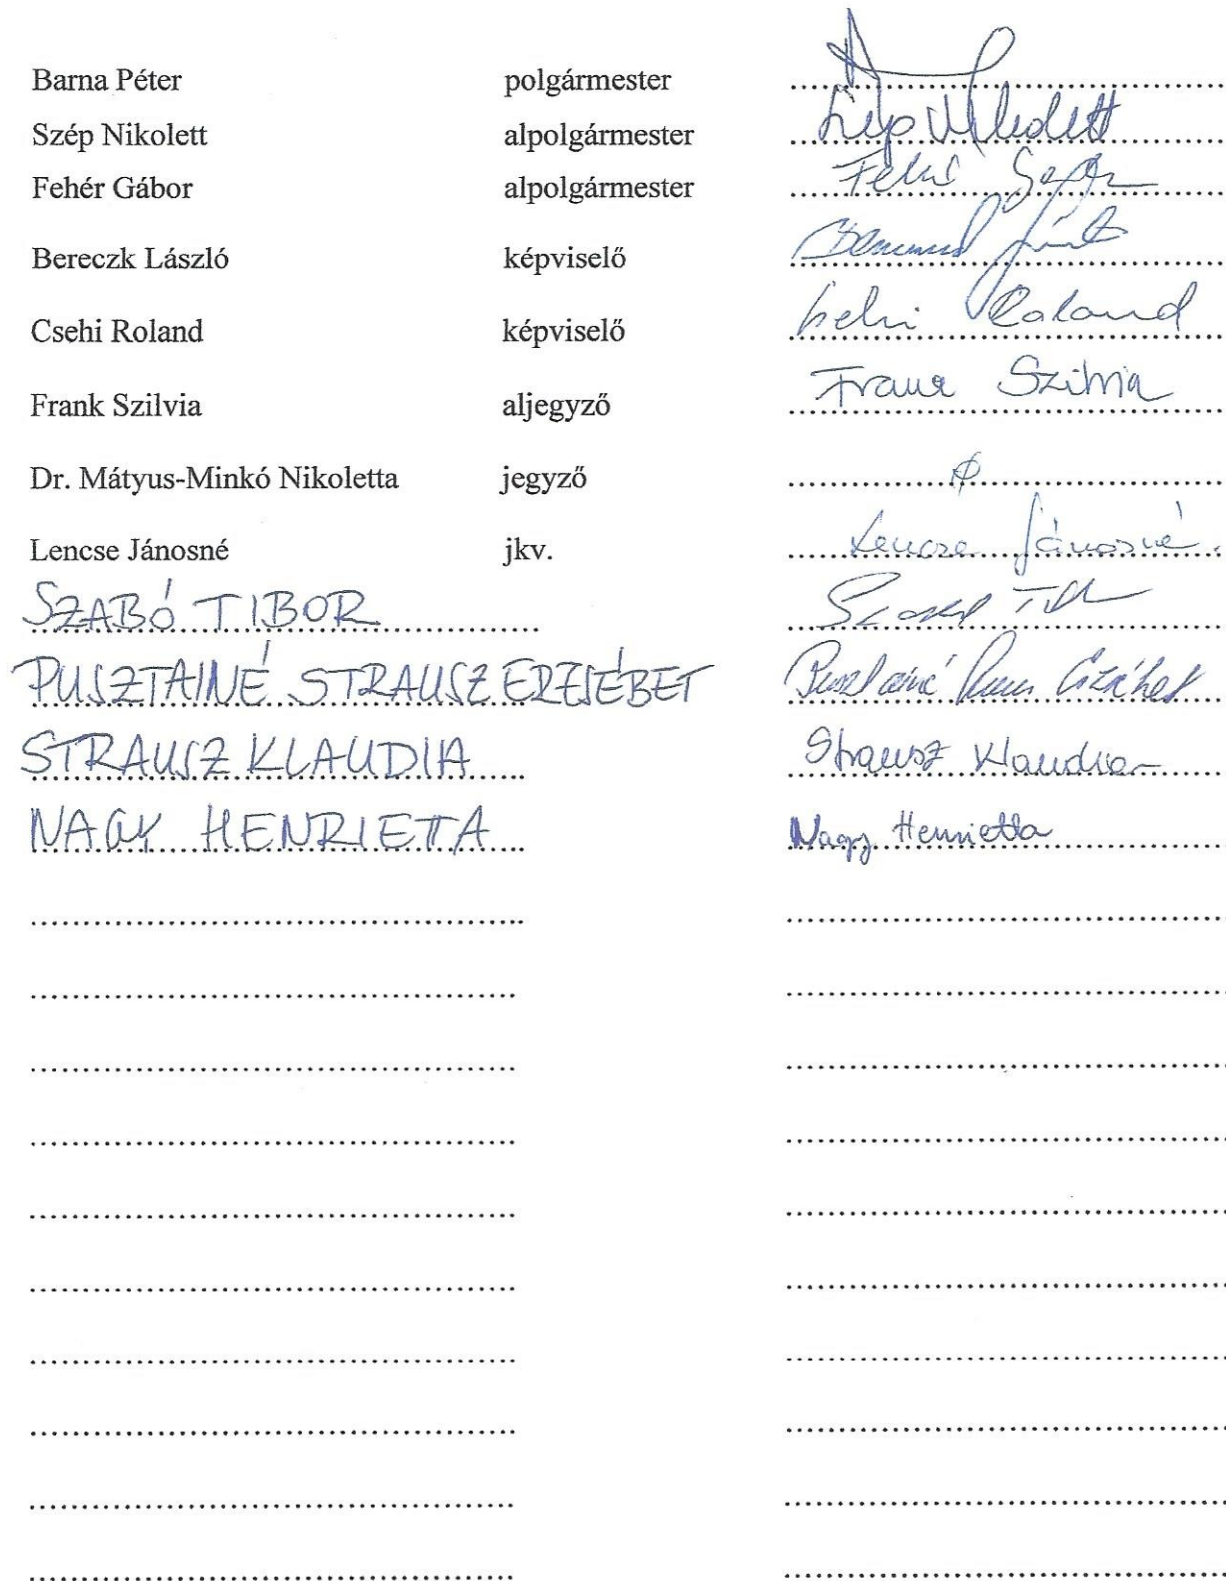 Barna Péter polgármester
Szép Nikolett alpolgármester Szép Nikolett
Fehér Gábor alpolgármester Fehér Gábor
Bereczk László képviselő
Csehi Roland képviselő Csehi Roland
Frank Szilvia aljegyző Frank Szilvia
Dr. Mátyus-Minkó Nikoletta jegyző
Lencse Jánosné jkv. Lencse Jánosné
SZABÓ TIBOR Szabó Tibor
PUSZTAINÉ STRAUSZ ERZSÉBET Pusztainé Erzsébet
STRAUSZ KLAUDIA Strausz Klaudia
NAGY HENRIETTA Nagy Henrietta